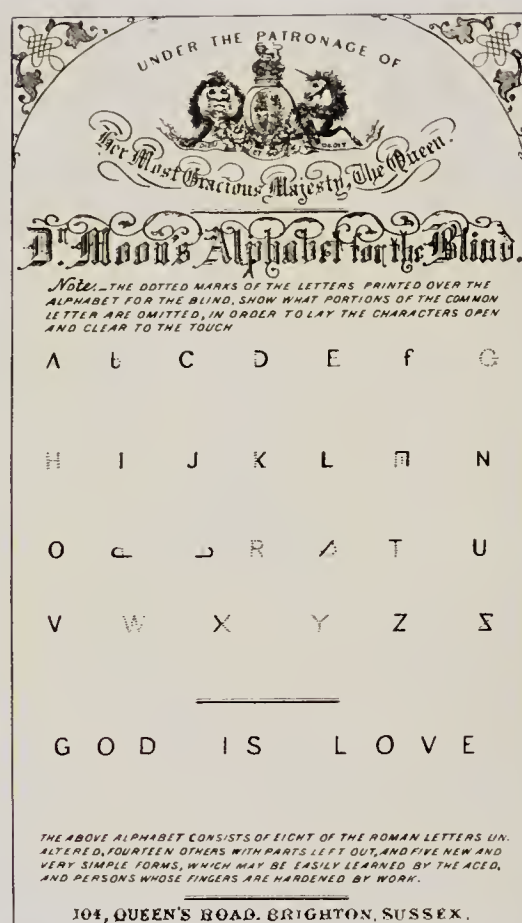 UNDER THE PATRONAGE OF
DIEU ET MON DROIT
Her Most Gracious Majesty, The Queen.
Dr. Moon's Alphabet for the Blind.
Note.—THE DOTTED MARKS OF THE LETTERS PRINTED OVER THE
ALPHABET FOR THE BLIND, SHOW WHAT PORTIONS OF THE COMMON
LETTER ARE OMITTED, IN ORDER TO LAY THE CHARACTERS OPEN
AND CLEAR TO THE TOUCH
A b C D E f G
H I J K L M N
O R T U
V W X Y Z
GOD IS LOVE
THE ABOVE ALPHABET CONSISTS OF EIGHT OF THE ROMAN LETTERS UN.
ALTERED, FOURTEEN OTHERS WITH PARTS LEFT OUT, AND FIVE NEW AND
VERY SIMPLE FORMS, WHICH MAY BE EASILY LEARNED BY THE AGED,
AND PERSONS WHOSE FINGERS ARE HARDENED BY WORK.
104, QUEEN'S ROAD. BRIGHTON, SUSSEX.